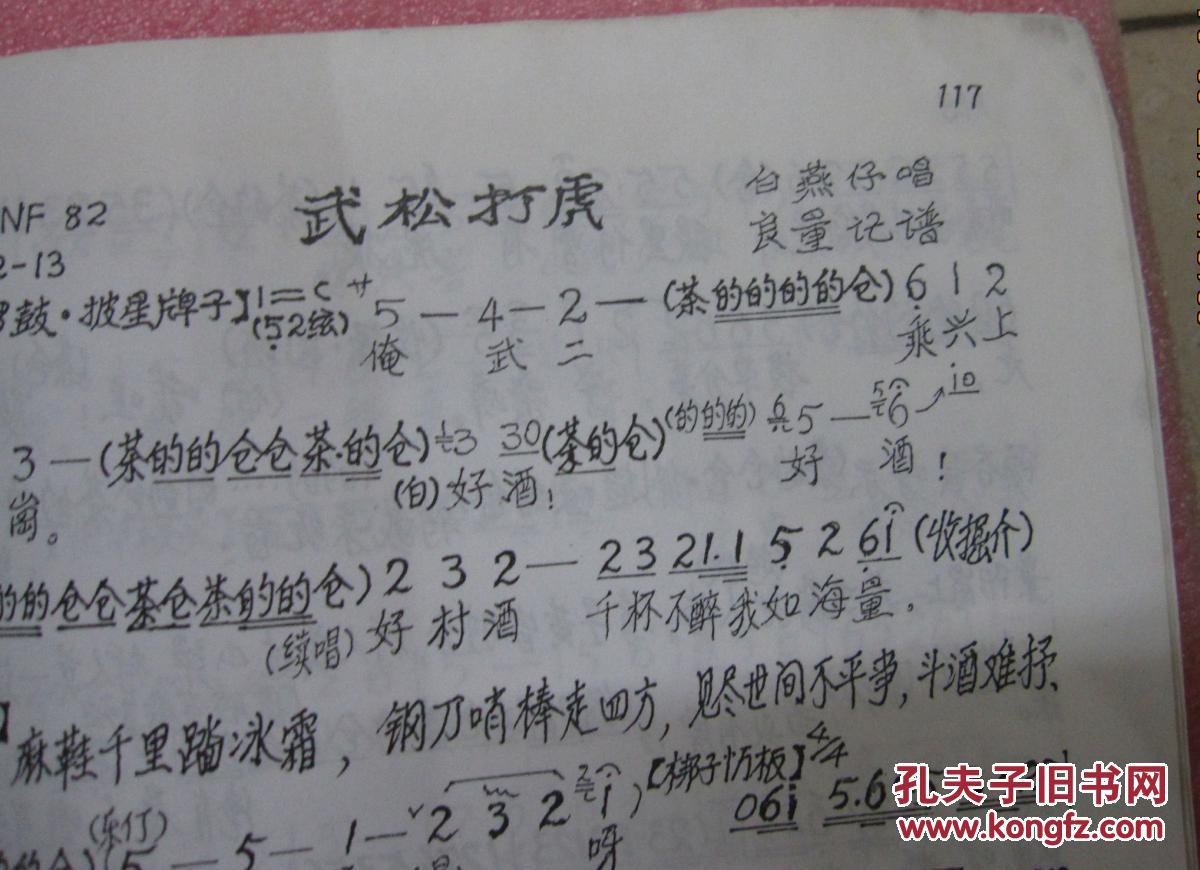 117
武松打虎
白燕仔唱
良量记谱
NF 82
2-13
鼓·披星牌子】1=C サ 5 — 4 — 2 — (茶的的的的仓) 6 1 2
(52弦)
俺 武 二 乘兴上
3 — (茶的的仓仓茶·的仓) 3 30 (茶的仓) (的的的) 5 — 6 i0
崗。 (白)好酒! 好 酒!
的的仓仓茶仓茶的的仓) 2 3 2 — 23 21.1 5 2 6i (收掘介)
(续唱) 好村酒 千杯不醉我如海量。
麻鞋千里踏冰霜, 钢刀哨棒走四方, 见尽世间不平事, 斗酒难抒
5 — 5 — 1 — 2 3 2 i) 【梆子忟板】4/4 06i 5.6
呀
孔夫子旧书网
www.kongfz.com